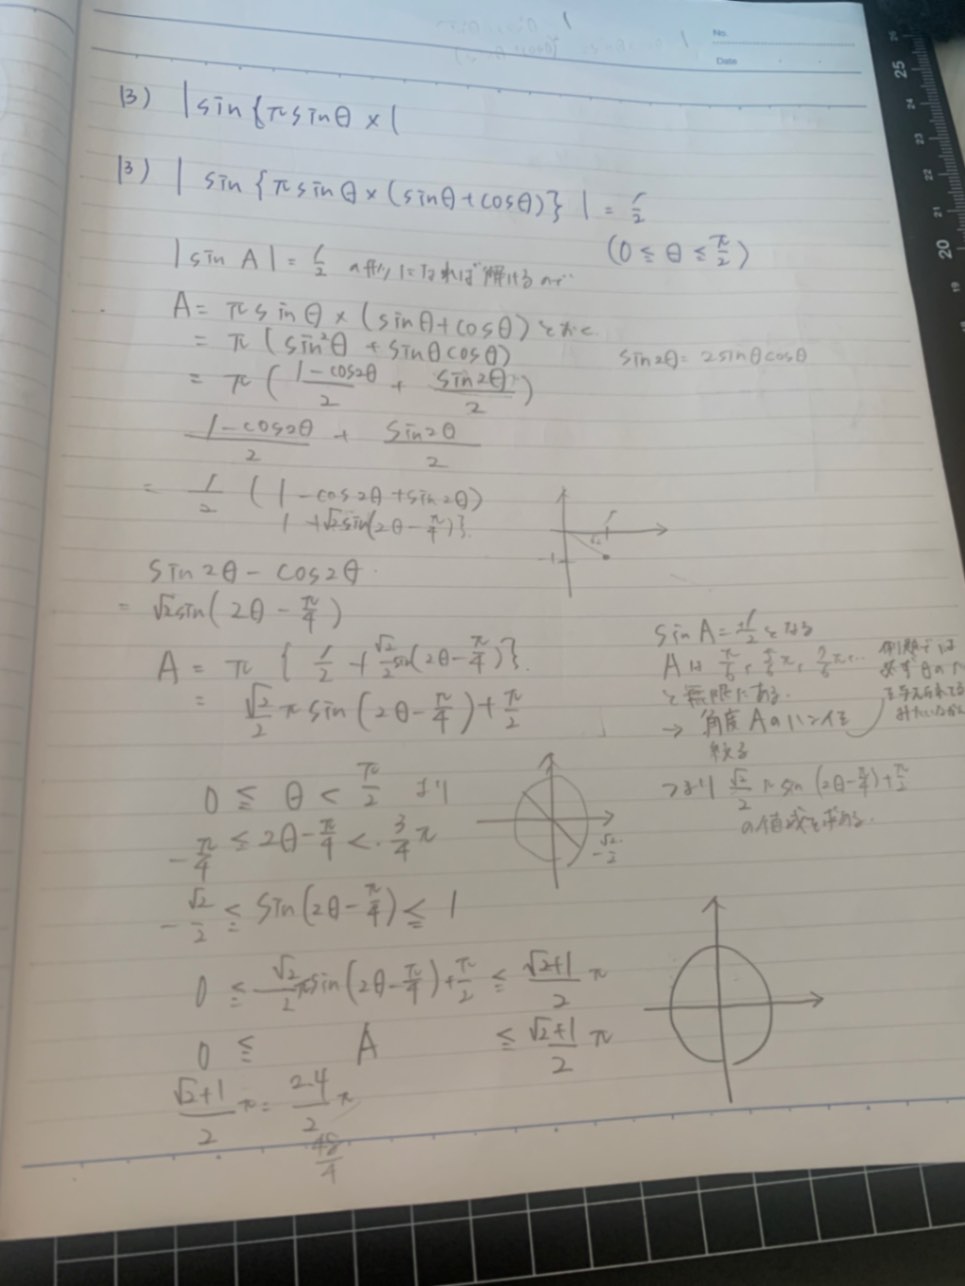 No.
Date
(3) | sin {π sin θ × (
(3) | sin {π sin θ × (sin θ + cos θ)} | = 1/2
(0 ≦ θ ≦ π/2)
| sin A | = 1/2 の形になれば解けるので
A = π sin θ × (sin θ + cos θ) とおく
= π (sin²θ + sin θ cos θ)
sin 2θ = 2 sin θ cos θ
= π ( (1 - cos 2θ)/2 + (sin 2θ)/2 )
(1 - cos 2θ)/2 + (sin 2θ)/2
= 1/2 (1 - cos 2θ + sin 2θ)
1 + √2 sin(2θ - π/4)}
1
-1
sin 2θ - cos 2θ
= √2 sin(2θ - π/4)
A = π { 1/2 + √2/2 sin(2θ - π/4)}
= √2/2 π sin (2θ - π/4) + π/2
sin A = ±1/2 となる
A は π/6, 5/6 π, 7/6 π…
と無限にある
→ 角度 A のハンイを
絞る
つまり √2/2 π sin (2θ - π/4) + π/2
の値域を求める
0 ≦ θ < π/2 より
-π/4 ≦ 2θ - π/4 < 3/4 π
-√2/2
-√2/2 ≦ sin(2θ - π/4) ≦ 1
0 ≦ √2/2 π sin(2θ - π/4) + π/2 ≦ (√2+1)/2 π
0 ≦ A ≦ (√2+1)/2 π
(√2+1)/2 π = 2.4/2 π
4.8/4
25
24
23
22
21
20
19